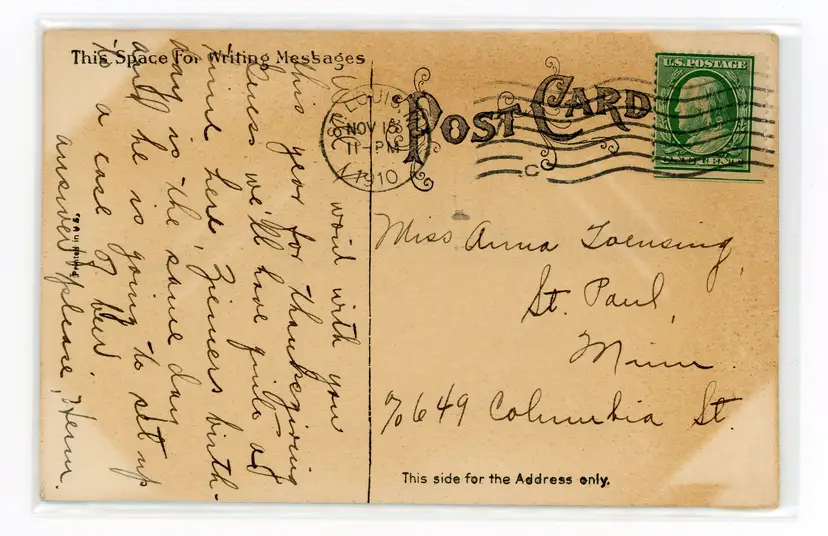 This Space For Writing Messages
POST CARD
U.S. POSTAGE
ST. LOUIS
NOV
11-PM
1910
with you
this year for thanksgiving
Guess we'll have quite a
here, Ziemers birth-
day is the same day
and he is going to set up
a case of beer
answer please, Herm.
Miss Anna Toensing,
St. Paul,
Minn.
c/o 649 Columbia St.
This side for the Address only.